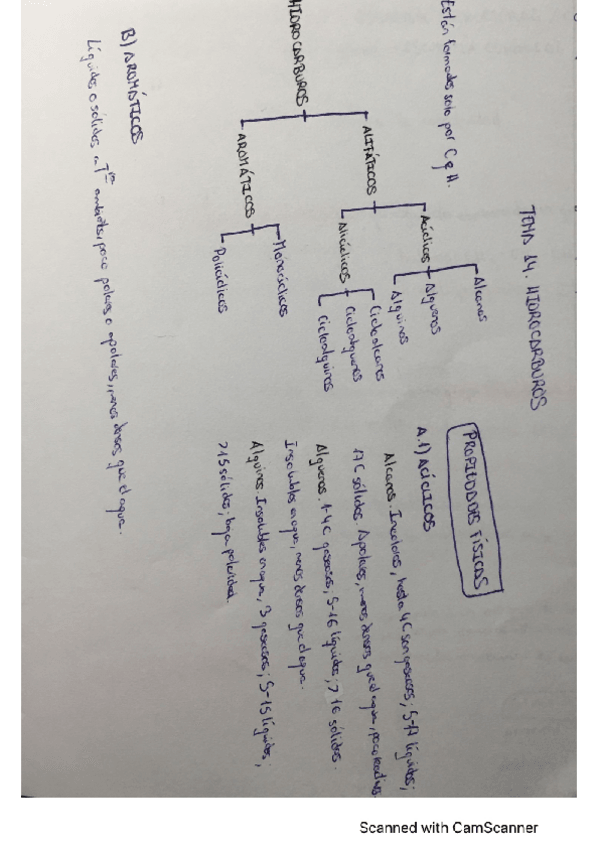 TEMA 14. HIDROCARBUROS
Están formados solo por C y H.
HIDROCARBUROS
ALIFÁTICOS
Acíclicos
Alcanos
Alquenos
Alquinos
Alicíclicos
Cicloalcanos
Cicloalquenos
Cicloalquinos
AROMÁTICOS
Monocíclicos
Policíclicos
PROPIEDADES FÍSICAS
A.1) ACÍCLICOS
Alcanos. Incoloros, hasta 4C son gaseosos; 5-17 líquidos;
17C sólidos. Apolares, menos densos que el agua, poco reactivos
Alquenos. 1-4C gaseosos; 5-16 líquidos; >16 sólidos.
Insolubles en agua, menos densos que el agua.
Alquinos. Insolubles en agua, 3 gaseosos; 5-15 líquidos;
>15 sólidos; baja polaridad.
B) AROMÁTICOS
Líquidos o sólidos a Tª ambiente, poco polares o apolares, menos densos que el agua.
Scanned with CamScanner